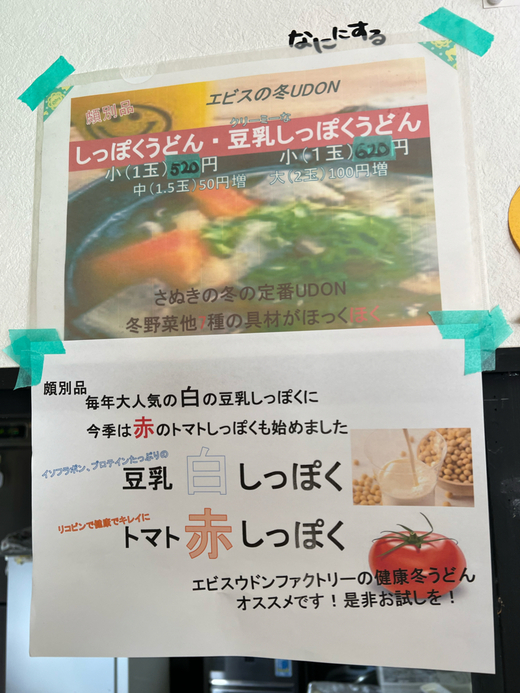 なににする
エビスの冬UDON
頗別品
しっぽくうどん・豆乳しっぽくうどん
小(1玉)520円 小(1玉)620円
中(1.5玉)50円増 大(2玉)100円増
さぬきの冬の定番UDON
冬野菜他 種の具材がほっくほく
頗別品
毎年大人気の白の豆乳しっぽくに
今季は赤のトマトしっぽくも始めました
イソフラボン、プロテインたっぷりの
豆乳 白 しっぽく
リコピンで健康でキレイに
トマト 赤 しっぽく
エビスウドンファクトリーの健康冬うどん
オススメです!是非お試しを!